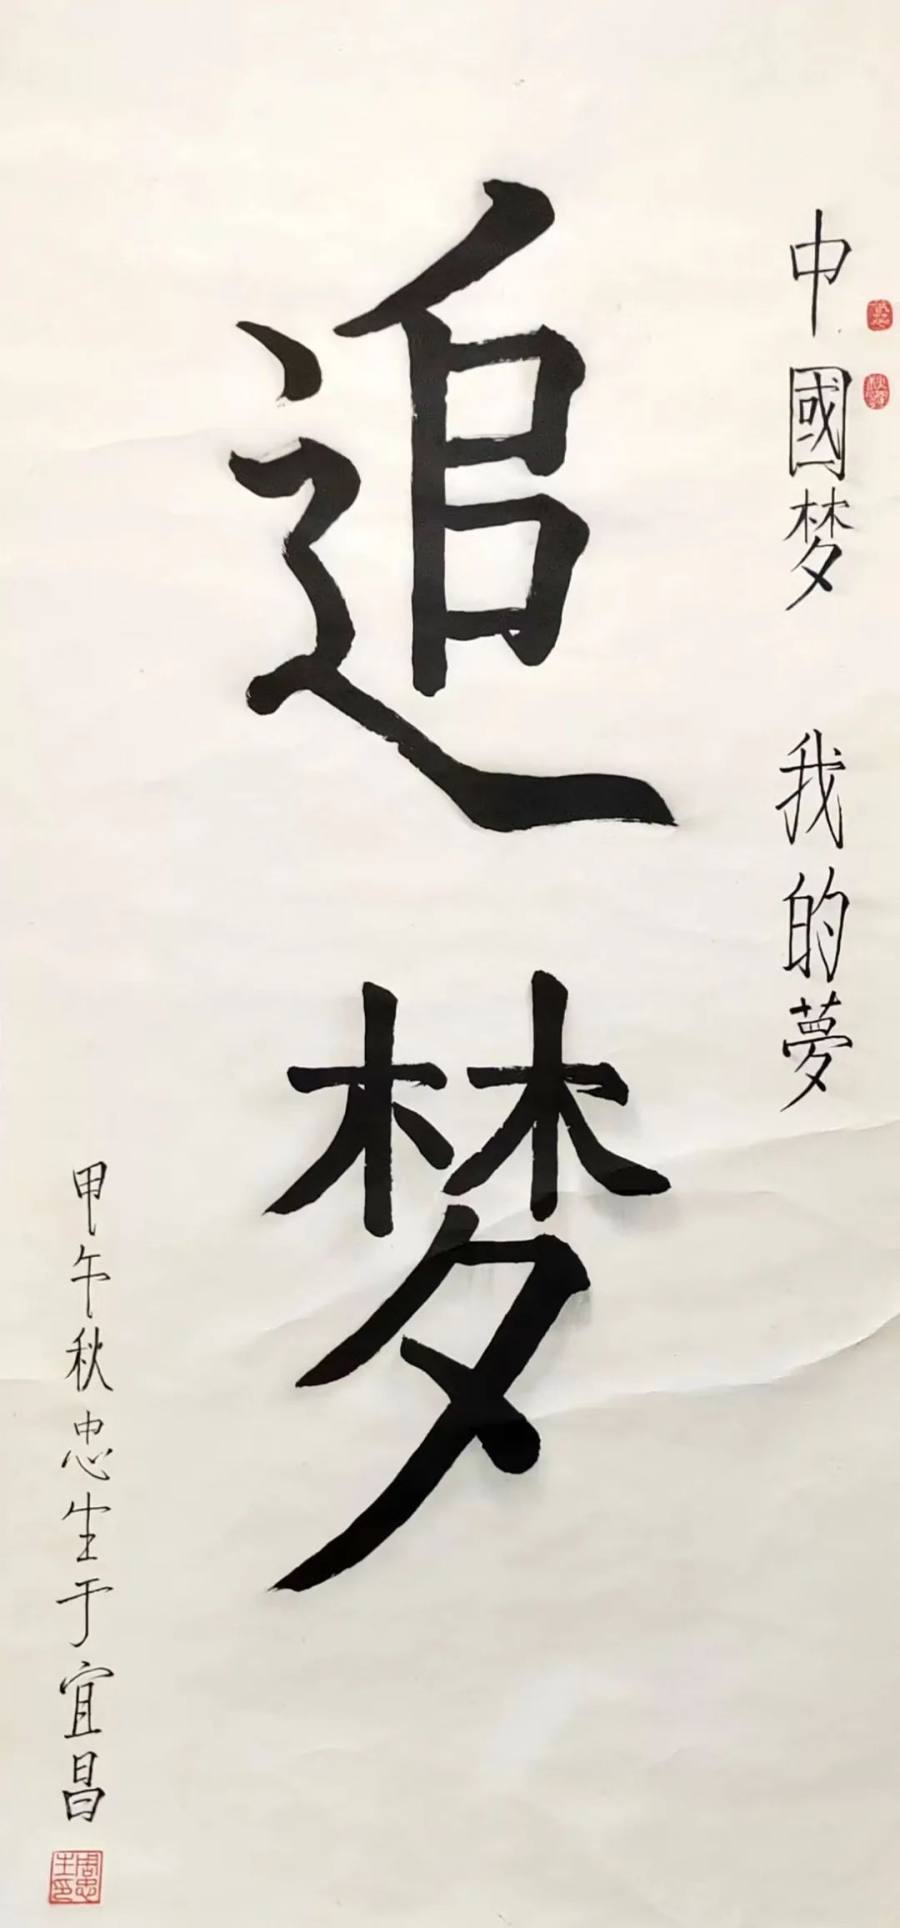 中國梦 我的夢
追梦
甲午秋忠生于宜昌
周忠生印